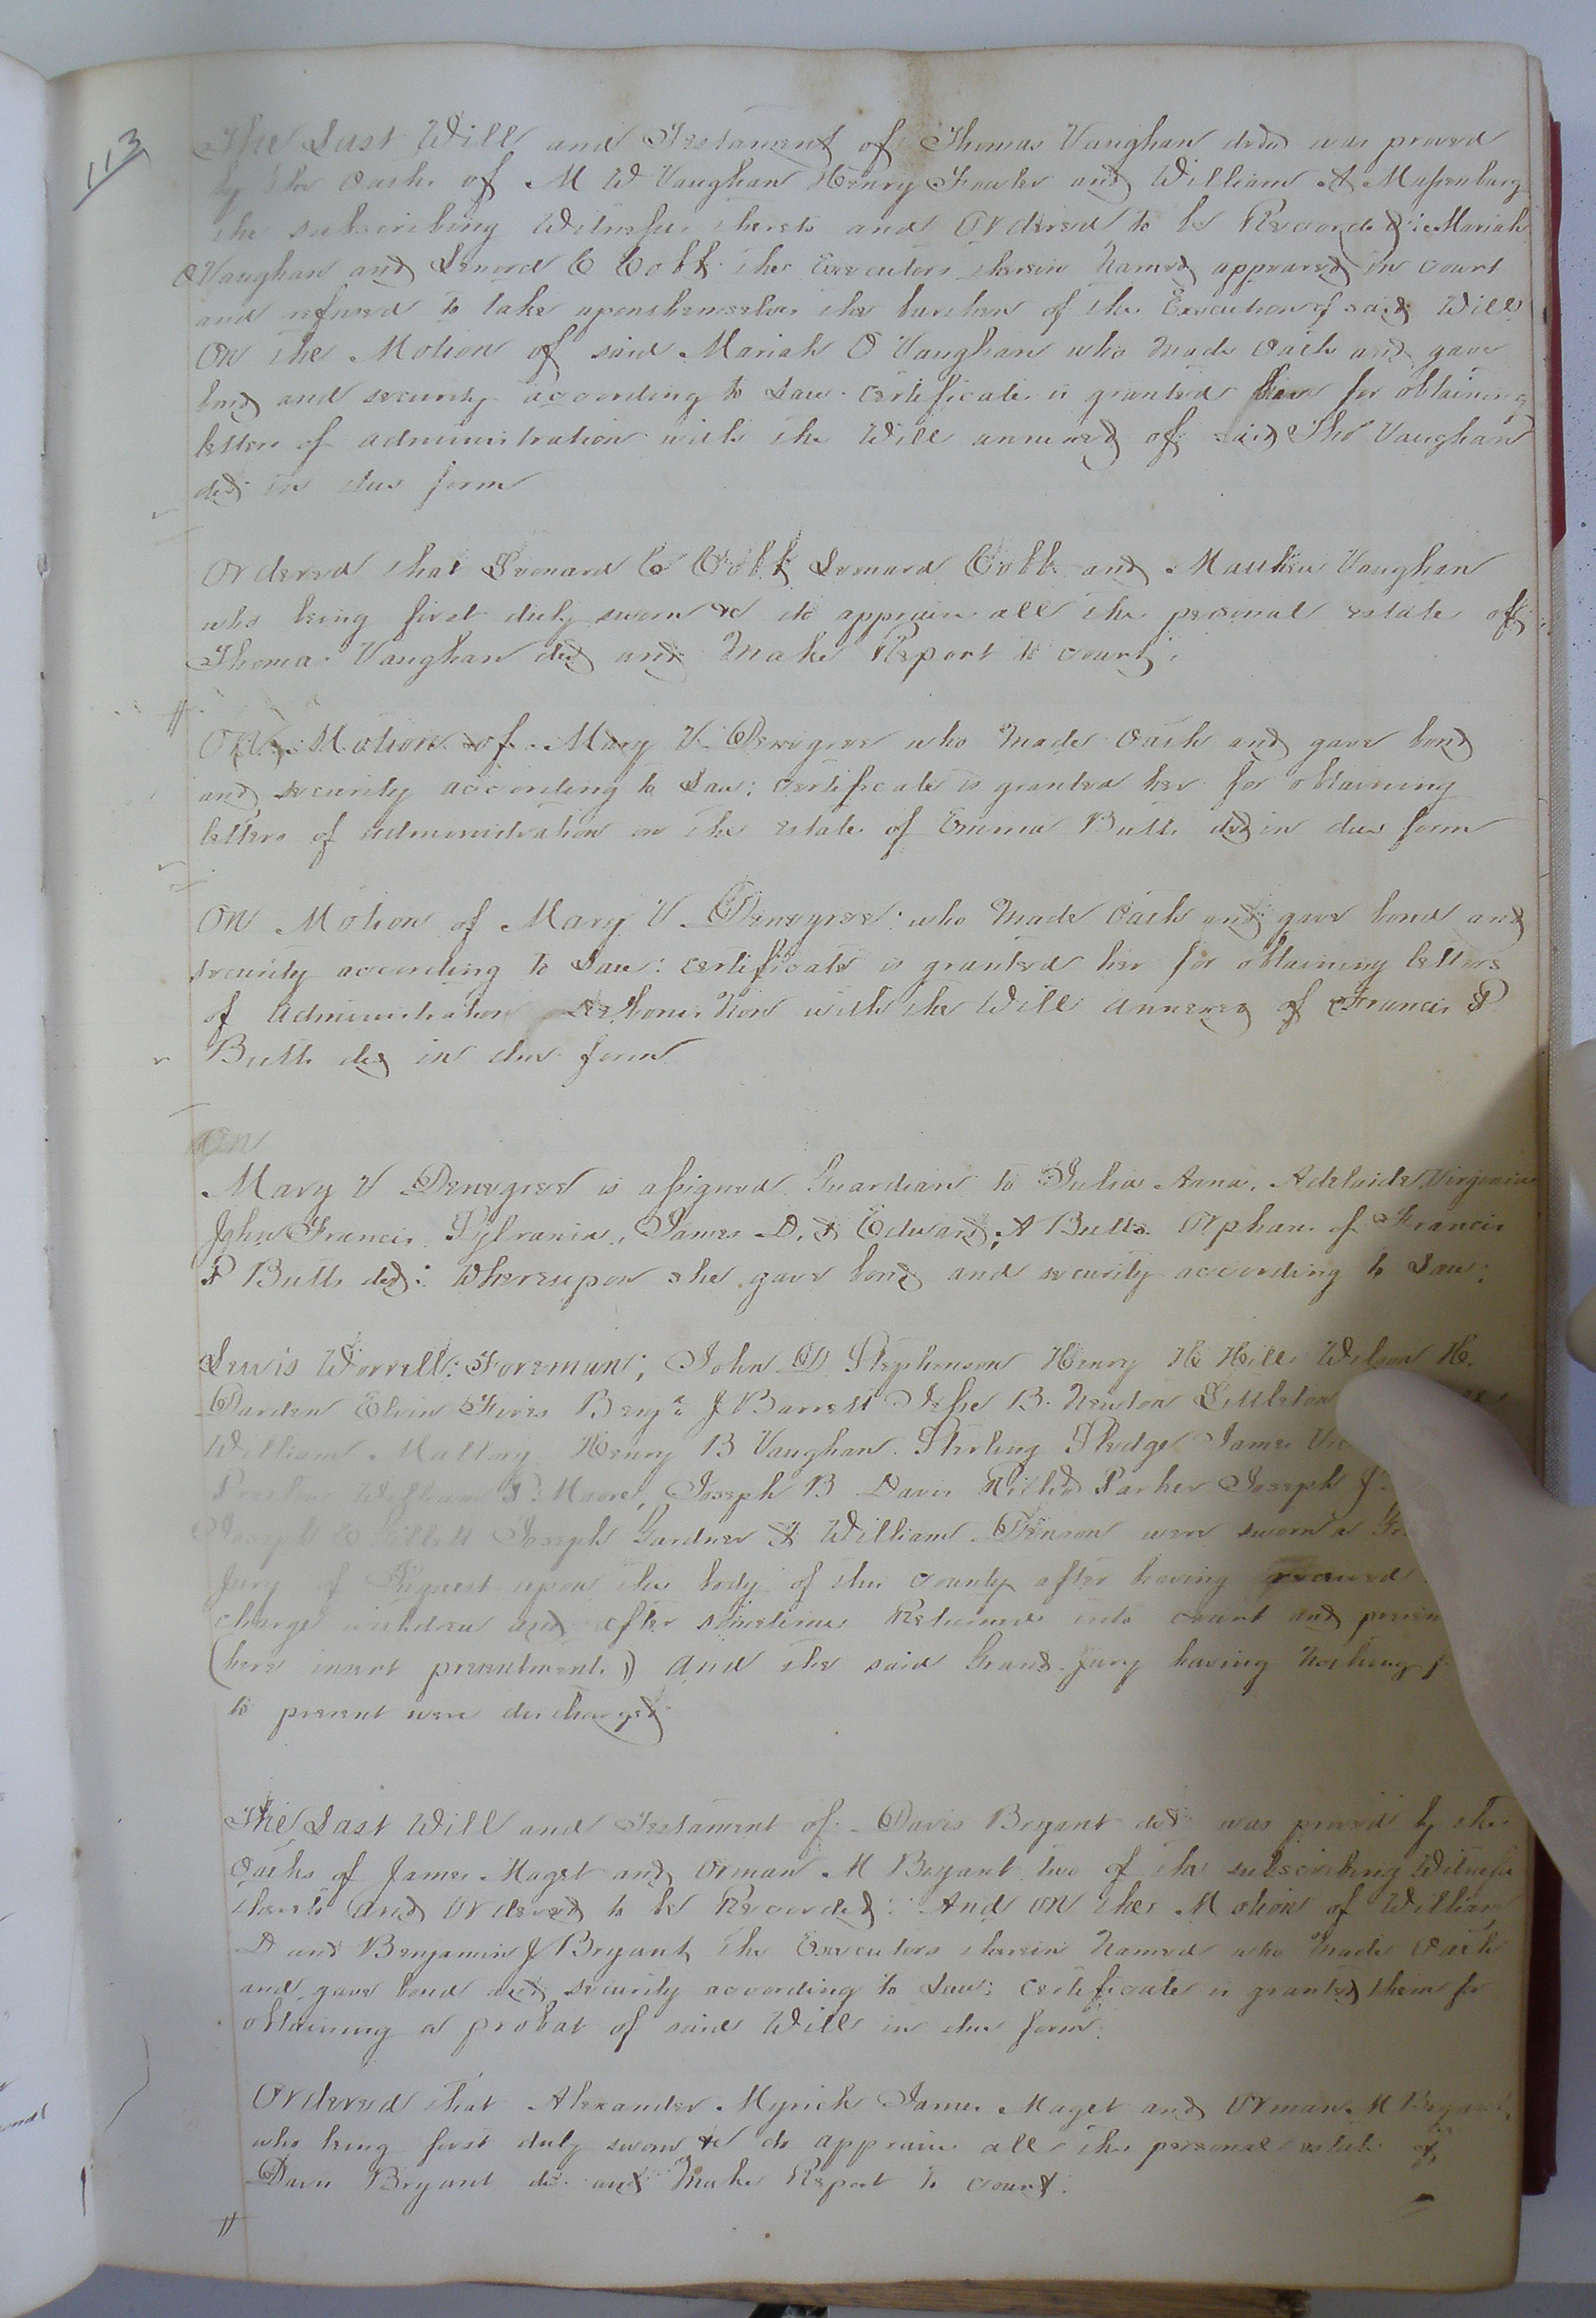 113
The Last Will and Testament of Thomas Vaughan decd was proved
by the Oaths of M W Vaughan Henry Fowler and William A Massenburg
the subscribing Witnesses thereto and Ordered to be Recorded: Mariah
O Vaughan and Lenord C Cobb the Executors therein Named appeared in court
and refused to take upon themselves the burthen of the Execution of said Will
On the Motion of said Mariah O Vaughan who Made Oath and gave
bond and security according to Law certificate is granted her for obtaining
letters of administration with the Will annexed of said Tho Vaughan
decd in due form
Ordered that Leonard C Cobb Leonard Cobb and Vaughan
who being first duly sworn &c do appraise all the personal estate of
Thomas Vaughan decd and Make Report to court.
On Motion of Mary V Denegree who Made Oath and gave bond
and security according to Law: certificate is granted her for obtaining
letters of administration on the estate of Emma Butts decd in due form
On Motion of Mary V Denegree who Made Oath and gave bond and
security according to Law: certificate is granted her for obtaining letters
of administration Debonis Non with the Will annexed of Francis P
Butts decd in due form
On
Mary V Denegree is assigned Guardian to Julia Anna, Adelaide, Virginia
John Francis, Sylvania, James D, & Edward A Butts Orphans of Francis
P Butts decd: Whereupon she gave bond and security according to Law:
Lewis Worrell: Foreman; John D Stephenson Henry H Hill Wilson H.
Darden Elvin Fires Benjn J Barrett Jesse B. Newton Littleton
William Mallory Henry B Vaughan Sterling Sledge James
William P. Moore, Joseph B Davis Richd Parker Joseph J
Joseph E Gillett Joseph Gardner & William Denson were sworn a
Jury of Inquest upon the body of this county after having received
charge withdrew and after sometime Returned into court and
(here insert presentments) and the said Grand Jury having Nothing
to present were discharged
The Last Will and Testament of Davis Bryant decd was proved by the
Oaths of James Maget and Orman M Bryant two of the subscribing Witnesses
thereto and Ordered to be Recorded: And on the Motion of William
D and Benjamin J Bryant the Executors therein Named who Made Oath
and gave bond and security according to Law: certificate is granted them for
obtaining a probat of said Will in due form.
Ordered that Alexander Myrick James Maget and Orman M Bryant,
who being first duly sworn &c do appraise all the personal estate of
Davis Bryant decd and Make Report to court.